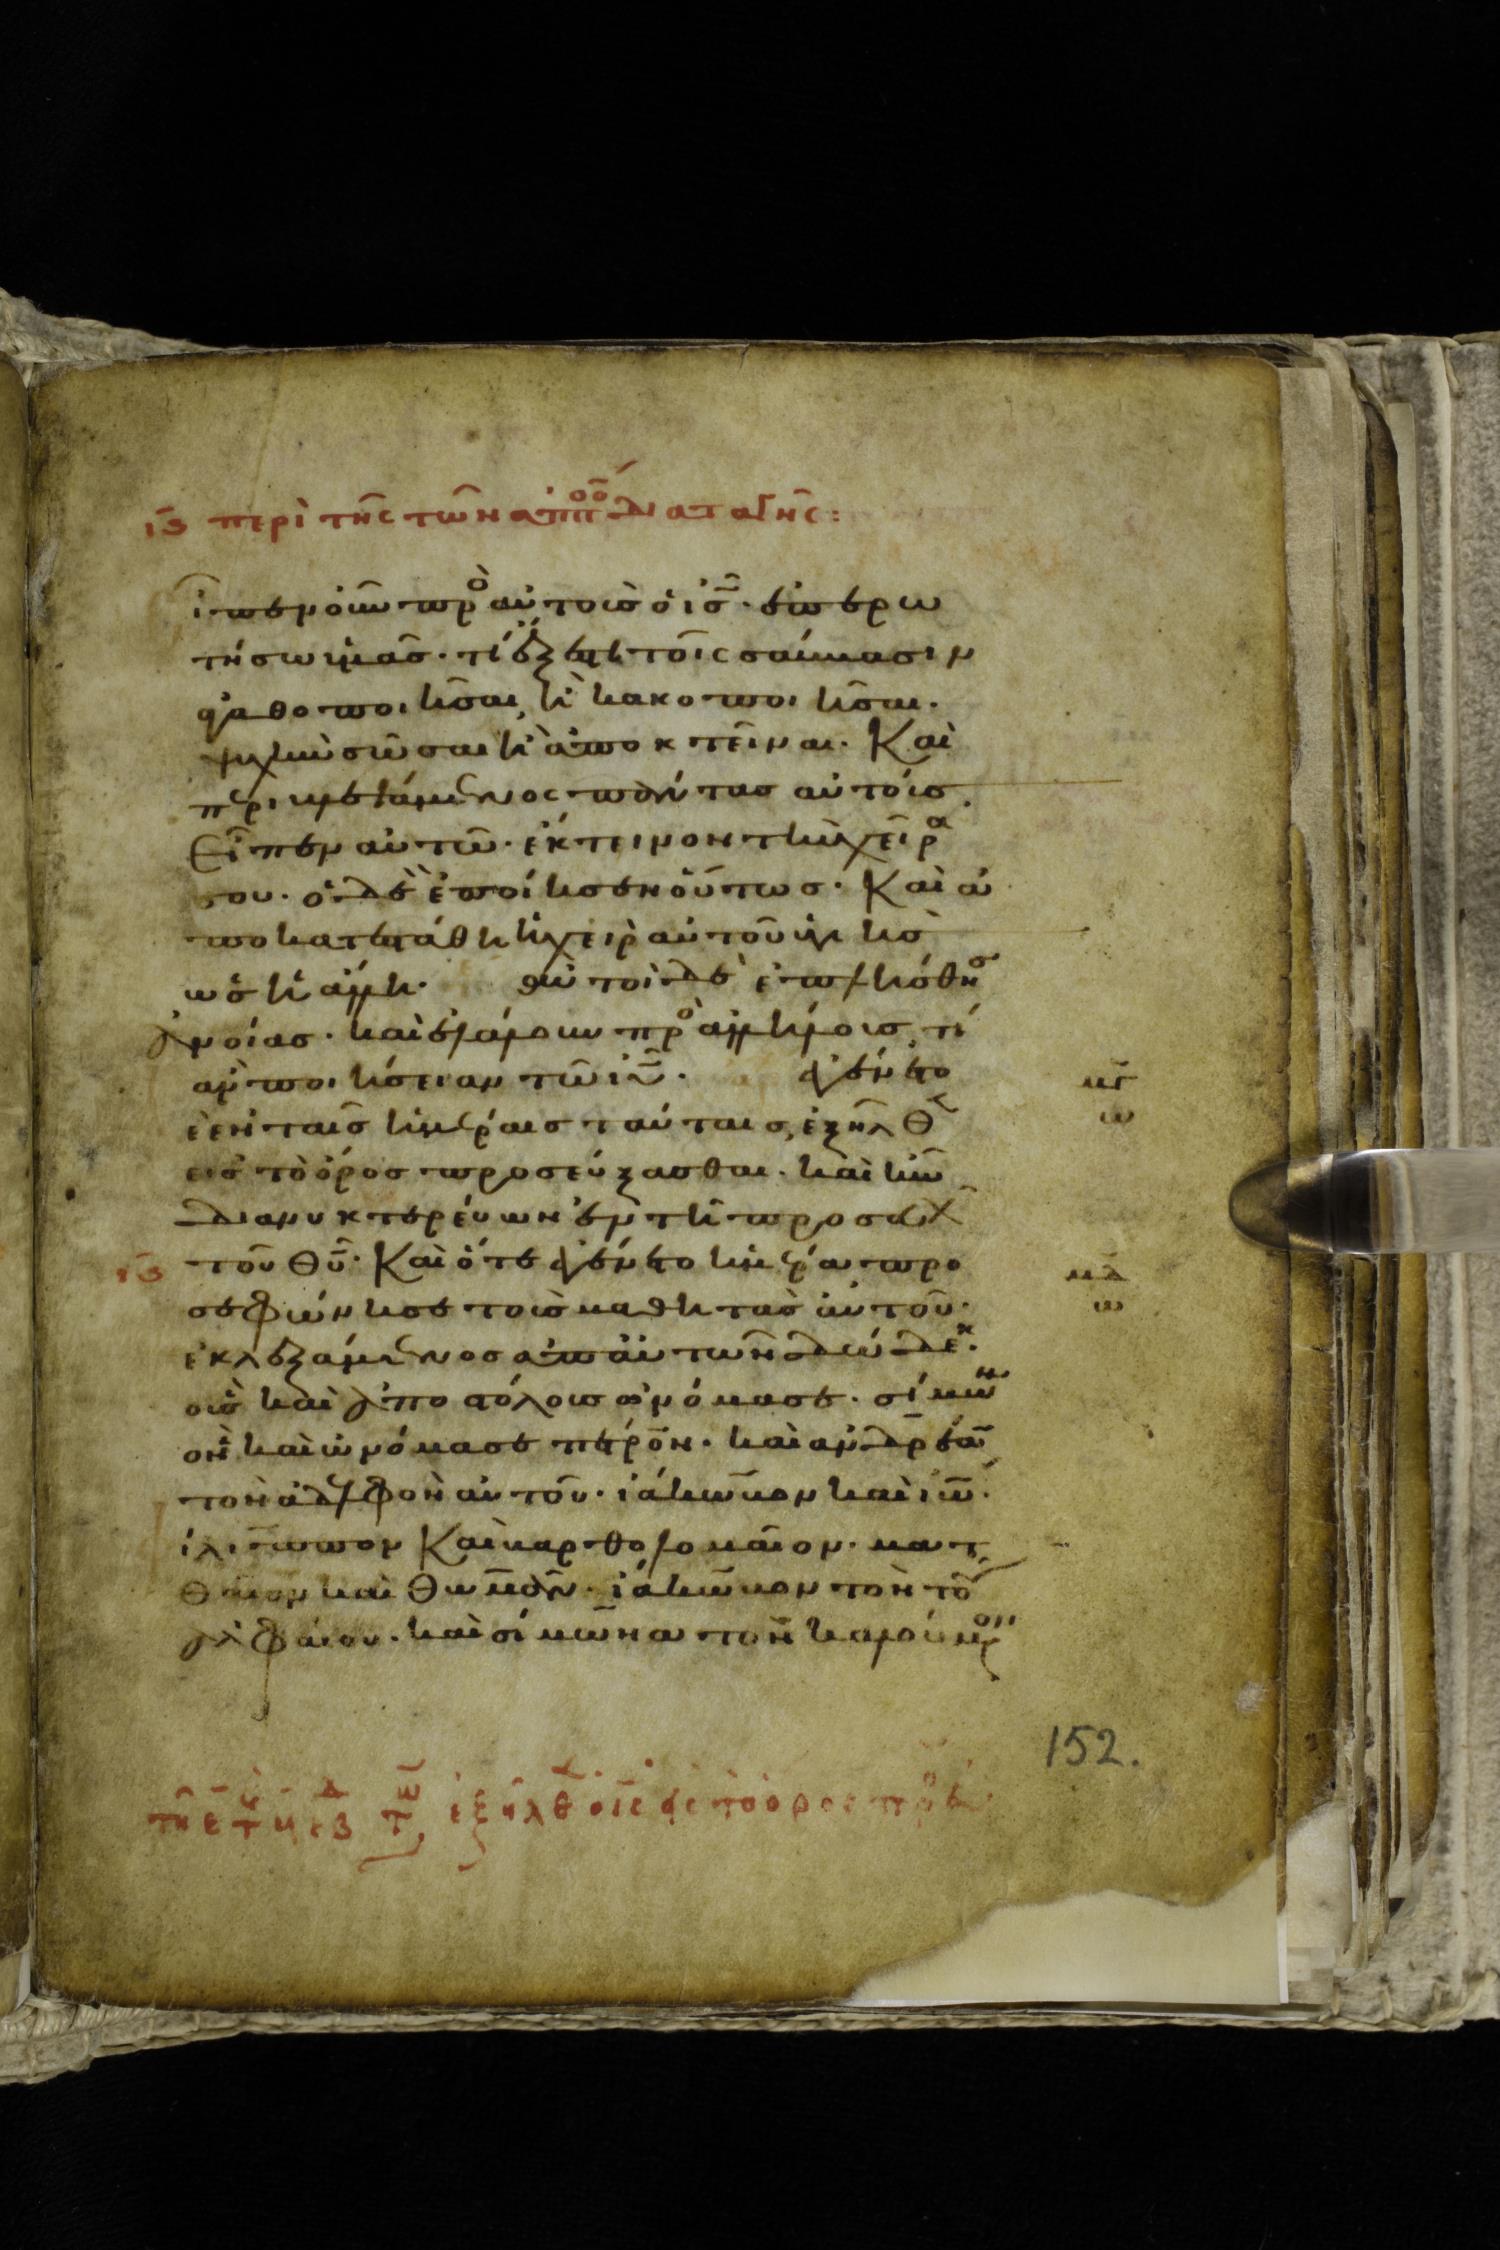 ιϛ περὶ τῆς τῶν ἀπο̅ο̅ διαταγῆς:
εἶπεν οὖν πρὸ αὐτοὺσ ὁ ι̅σ̅· ἐπερω
τήσω ὑμᾶσ· τί ἔξεστι τοῖς σάββασιν
ἀγαθοποιῆσαι, ἢ κακοποιῆσαι·
ψυχὴν σῶσαι ἢ ἀποκτεῖναι· Καὶ
περιβλεψάμενος πάντασ αὐτούσ
Εἶπεν αὐτῶ· ἔκτεινον τὴν χεῖρα
σου· ὁ δὲ ἐποίησεν οὕτωσ· Καὶ ἀ
ποκατεστάθη ἡ χεὶρ αὐτοῦ ὑγιὴσ
ὡσ ἡ ἄλλη· αὐτοὶ δὲ ἐπλήσθησ
ἀνοίασ· καὶ ἐλάλουν πρὸ ἀλλήλουσ τί
ἂν ποιήσειαν τῶ ι̅υ̅· ἐγένετο
μ̅γ̅
δὲ ἐν ταῖσ ἡμέραισ ταύταισ, ἐξῆλθ
ω
εἰσ τὸ ὄροσ προσεύξασθαι· καὶ ἦν
διανυκτερεύων ἐν τῆ προσευχ
ιϛ τοῦ θ̅υ̅· Καὶ ὅτε ἐγένετο ἡμέρα, προ
μ̅δ̅
σεφώνησε τοὺσ μαθητὰσ αὐτοῦ·
ω
ἐκλεξάμενοσ ἀπ αὐτῶν δώδεκ·
οὓσ καὶ ἀποστόλουσ ὠνόμασε· σίμων
ὃν καὶ ὠνόμασε πέτρον· καὶ ἀνδρέαν
τὸν ἀδελφὸν αὐτοῦ· ἰάκωβον καὶ ἰω·
ίλιππον Καὶ βαρθολομαῖον· ματ
θαῖον καὶ θωμᾶν· ἰάκωβον τὸν τοῦ
ἀλφαίου· καὶ σίμωνα τὸν καλούμ
152.
ἐξῆλθ ὁ ι̅ς̅ εἰς τὸ ὄρος